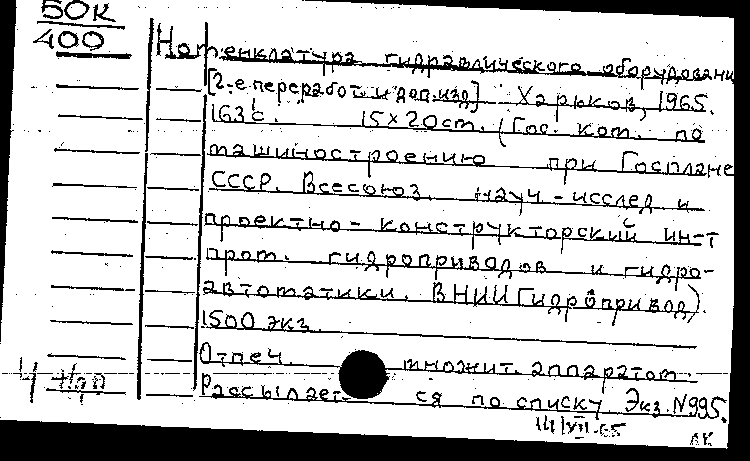 50К
400
Номенклатура гидравлического оборудовани
[2-е переработ. и доп. изд.] Харьков, 1965.
163 с. 15×20 см. (Гос. ком. по
машиностроению при Госплане
СССР. Всесоюз. науч-исслед и
проектно-конструкторский ин-т
пром. гидроприводов и гидро-
автоматики. ВНИИГидропривод).
1500 экз.
Отпеч. множит. аппаратом.
Рассылается по списку. Экз. №995.
4
14/VII-65
АК